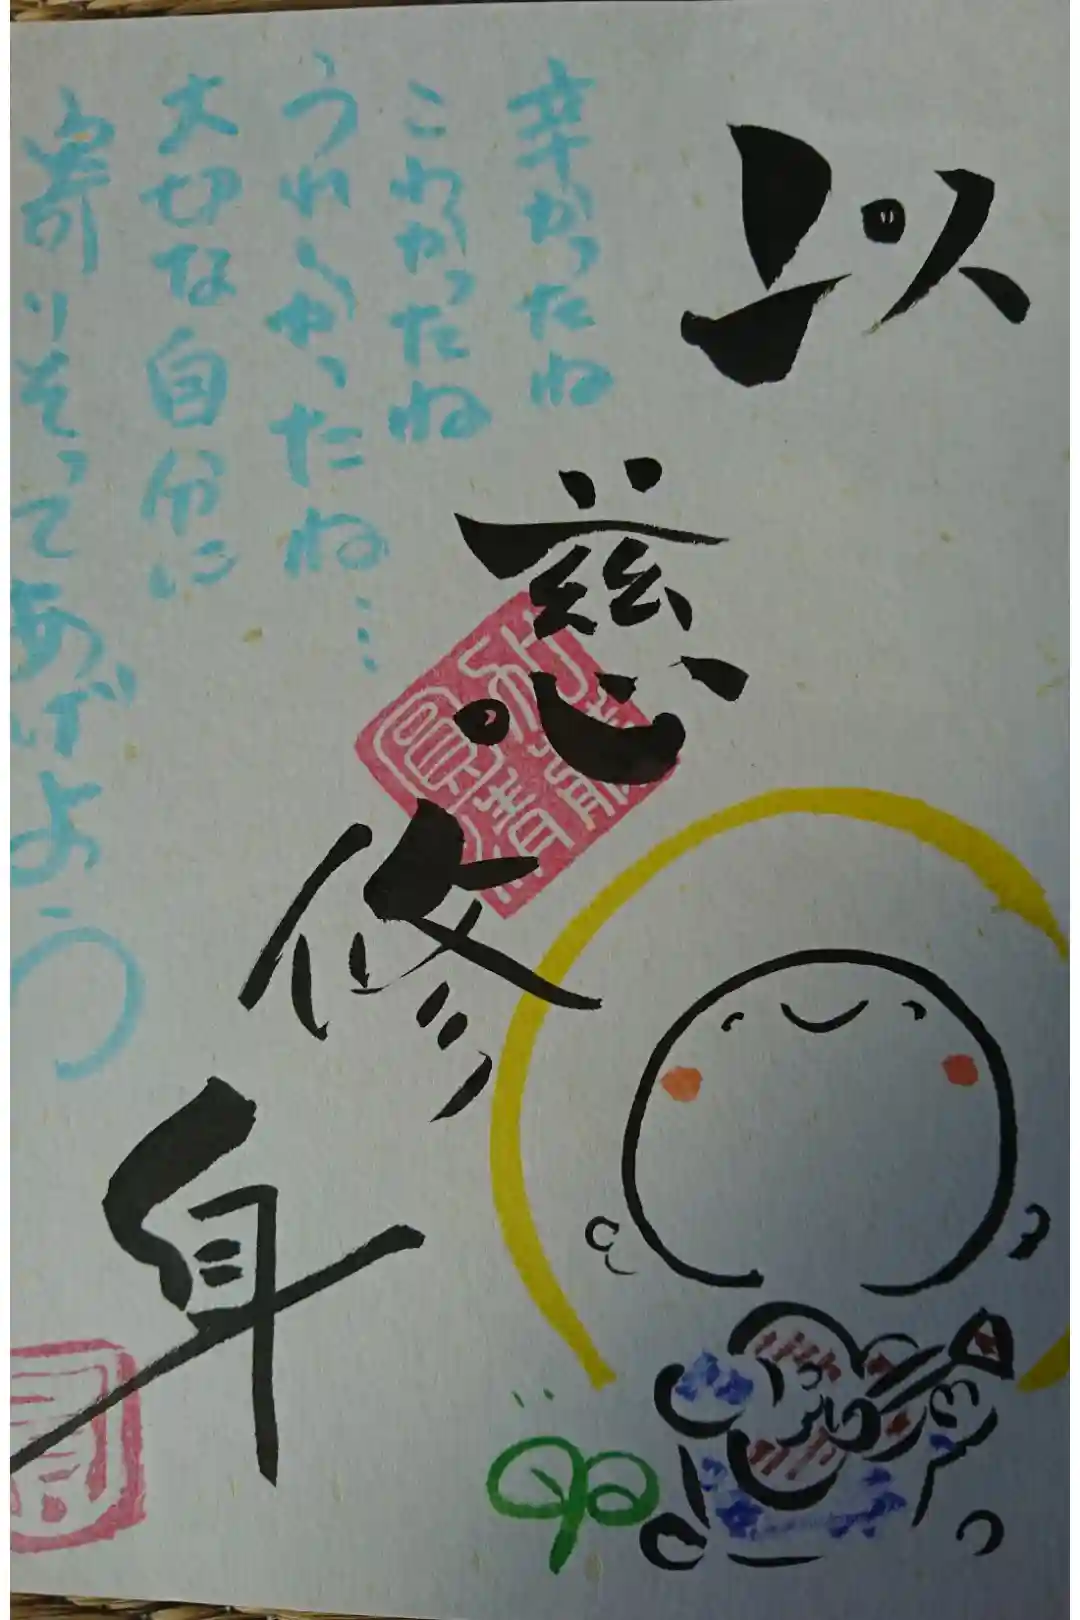 以慈修身
辛かったね
これかったね
うれしかったね…
大切な自分に
寄りそってあげよう